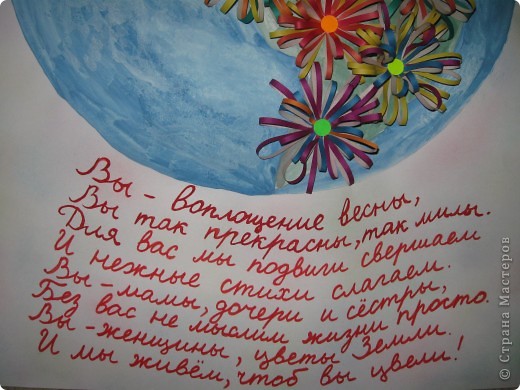 Вы - воплощение весны,
Вы так прекрасны, так милы.
Для вас мы подвиги свершаем
И нежные стихи слагаем.
Вы - мамы, дочери и сёстры,
Без вас не мыслим жизни просто.
Вы - женщины, цветы Земли.
И мы живём, чтоб вы цвели!
© Страна Мастеров